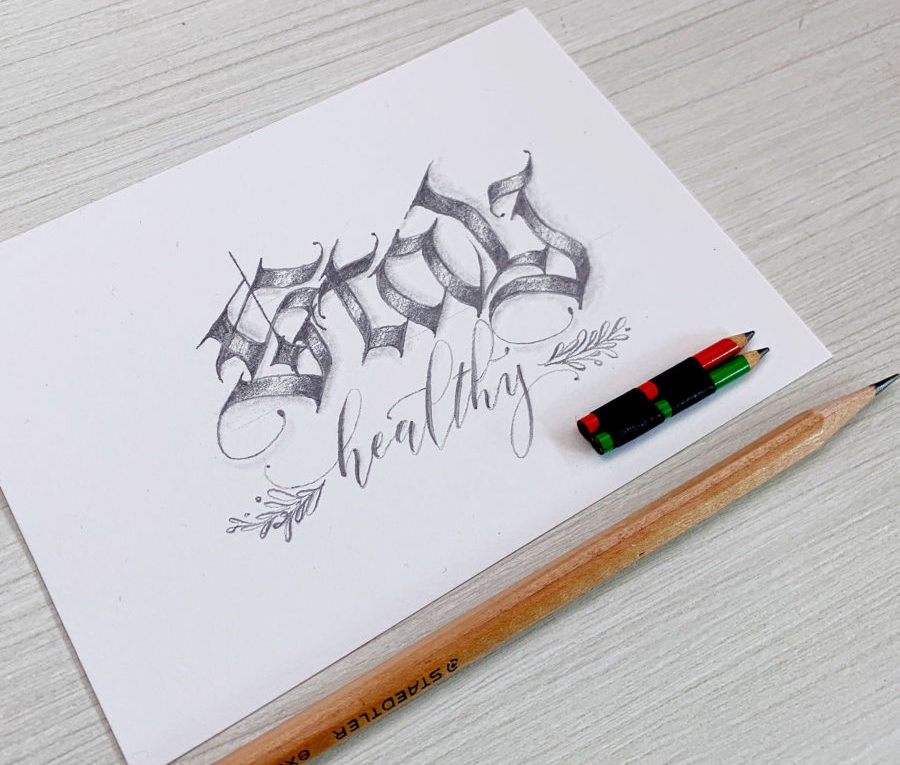 Stay
healthy
STAEDTLER